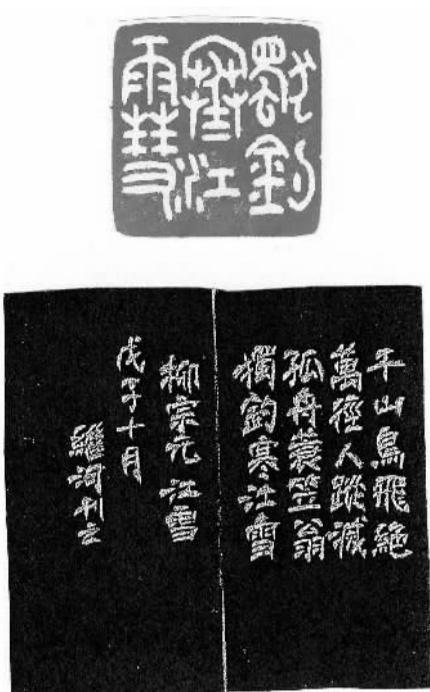 獨釣
寒江
雪
千山鳥飛絕
萬徑人蹤滅
孤舟蓑笠翁
獨釣寒江雪
柳宗元江雪
戊子十月
繼河刊之